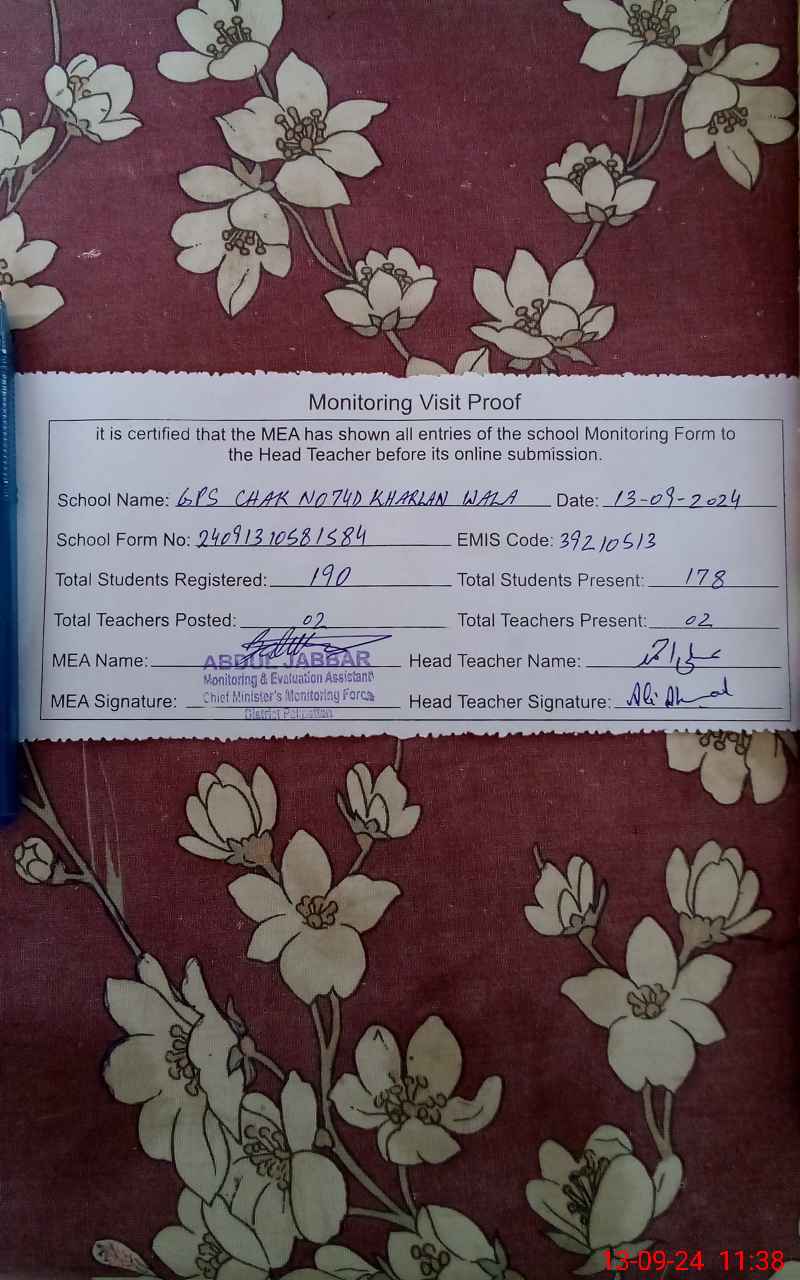 Monitoring Visit Proof
it is certified that the MEA has shown all entries of the school Monitoring Form to
the Head Teacher before its online submission.
School Name: GPS CHAK NO 74D KHARLAN WALA Date: 13-09-2024
School Form No: 24091310581584 EMIS Code: 39210513
Total Students Registered: 190 Total Students Present: 178
Total Teachers Posted: 02 Total Teachers Present: 02
MEA Name: ABDUL JABBAR Head Teacher Name: علی احمد
Monitoring & Evaluation Assistant
MEA Signature: Chief Minister's Monitoring Force Head Teacher Signature: Ali Ahmad
District Pakpattan
13-09-24 11:38